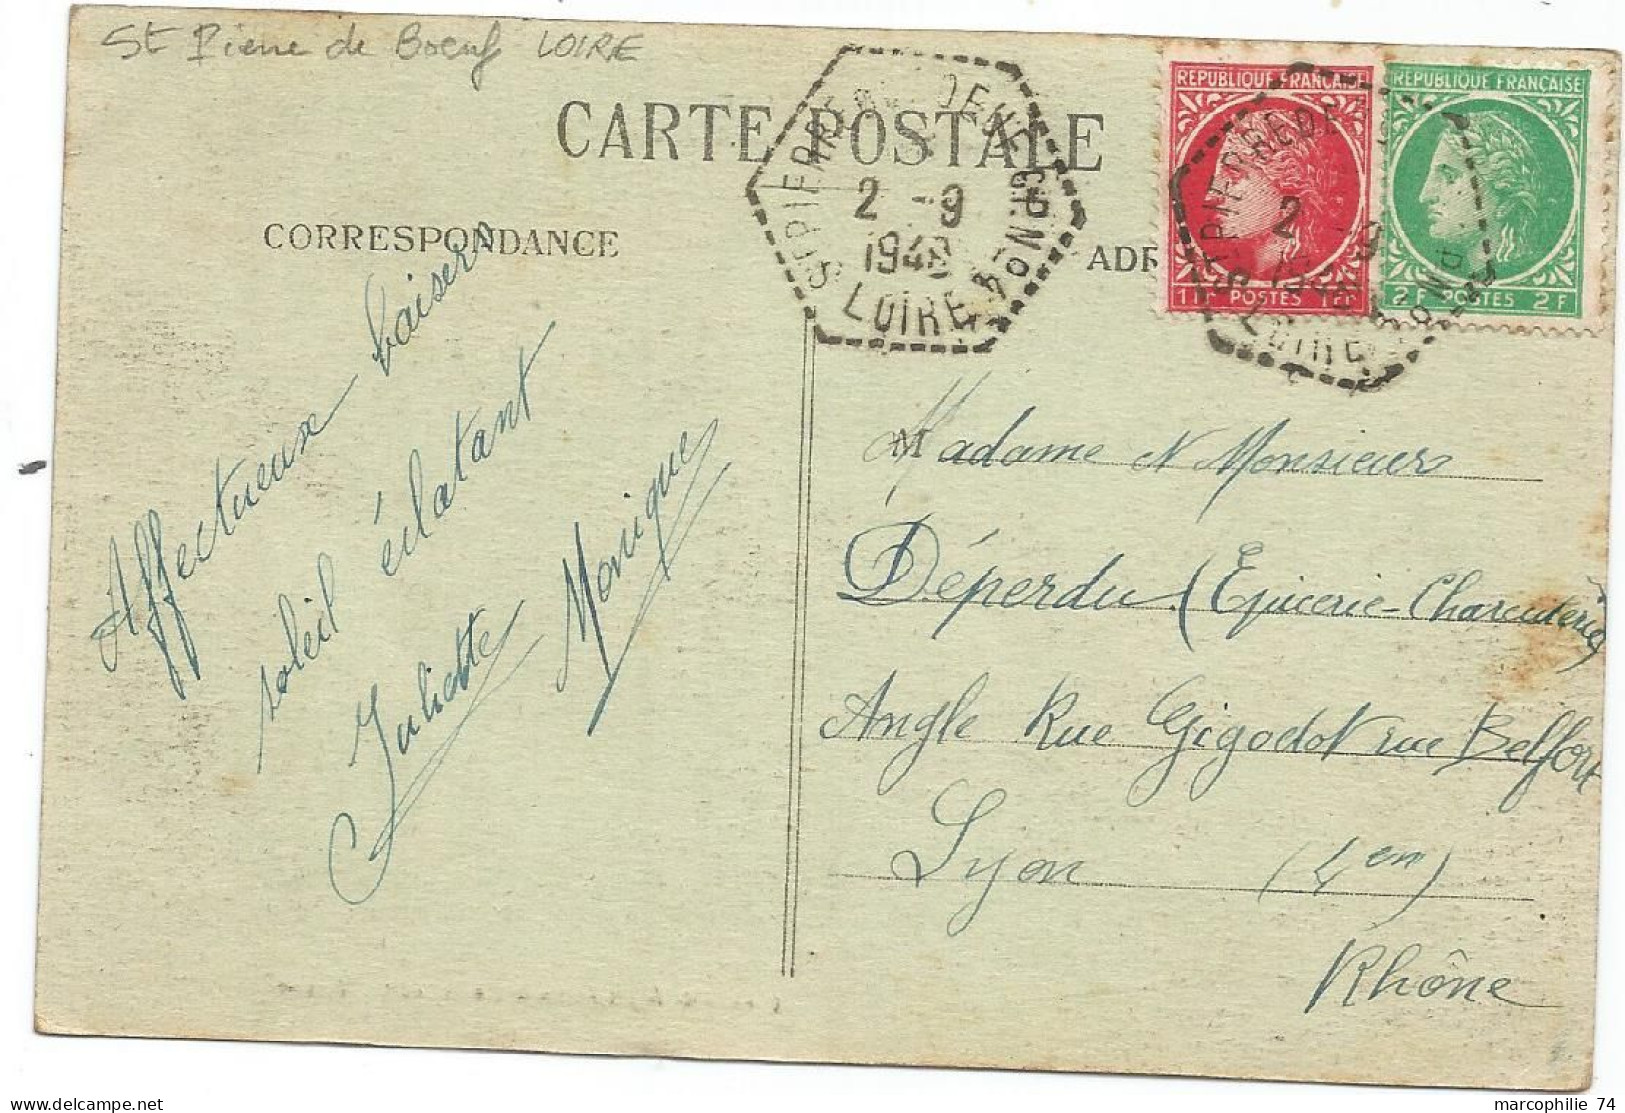 St Pierre de Boeuf LOIRE
CARTE POSTALE
CORRESPONDANCE
ST PIERRE DE BOEUF CP No 4
2 -9
1948
LOIRE
REPUBLIQUE FRANÇAISE
1F POSTES 1F
REPUBLIQUE FRANÇAISE
2F POSTES 2F
ST PIERRE DE
2 9
LOIRE
ADR
Affectueux baisers
soleil éclatant
Juliette Monique
M
Madame & Monsieur
Déperdu (Epicerie-Charcuterie)
Angle Rue Gigodot rue Belfort
Lyon (4em)
Rhône
marcophilie 74